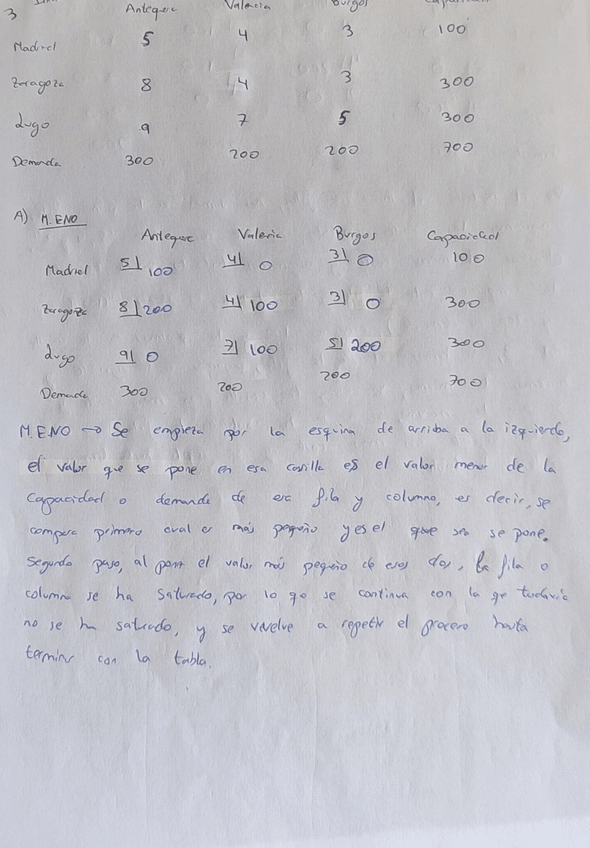 3
Antequer Valencia Burgos
Madrid 5 4 3 100
Zaragoza 8 4 3 300
Lugo 9 7 5 300
Demanda 300 200 200 700
A) M.ENO
Antequer Valenic Burgos Capacidad
Madrid 5 100 4 0 3 0 100
Zaragoza 8 200 4 100 3 0 300
Lugo 9 0 7 100 5 200 300
Demanda 300 200 200 700
M.ENO → Se empieza por la esquina de arriba a la izquierda,
el valor que se pone en esa casilla es el valor menor de la
capacidad o demanda de esa fila y columna, es decir, se
compara primero cual es más pequeño y es el que se pone.
Segundo paso, al poner el valor más pequeño de esos dos, la fila o
columna se ha saturado, por lo qe se continua con la qe todavia
no se ha saturado, y se vuelve a repetir el proceso hasta
terminar con la tabla.